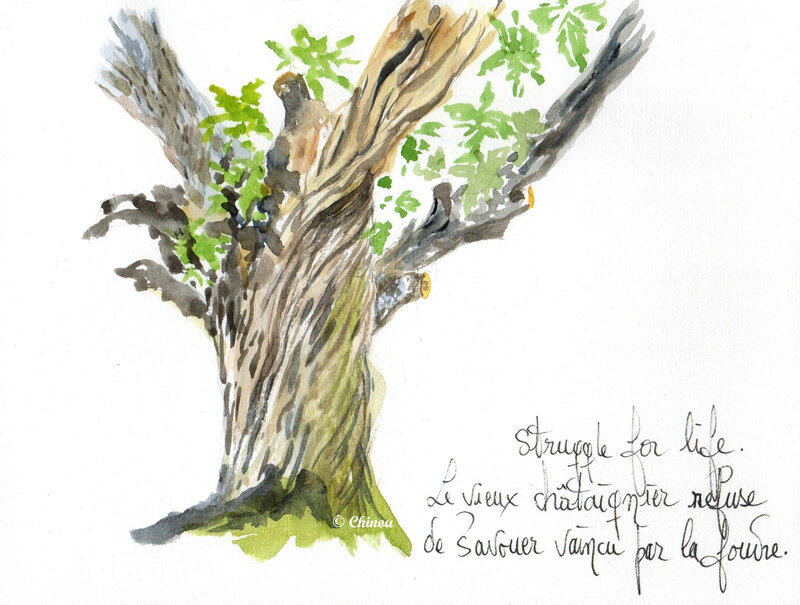 Struggle for life.
Le vieux châtaignier refuse
© Chinou
de s'avouer vaincu par la foudre.